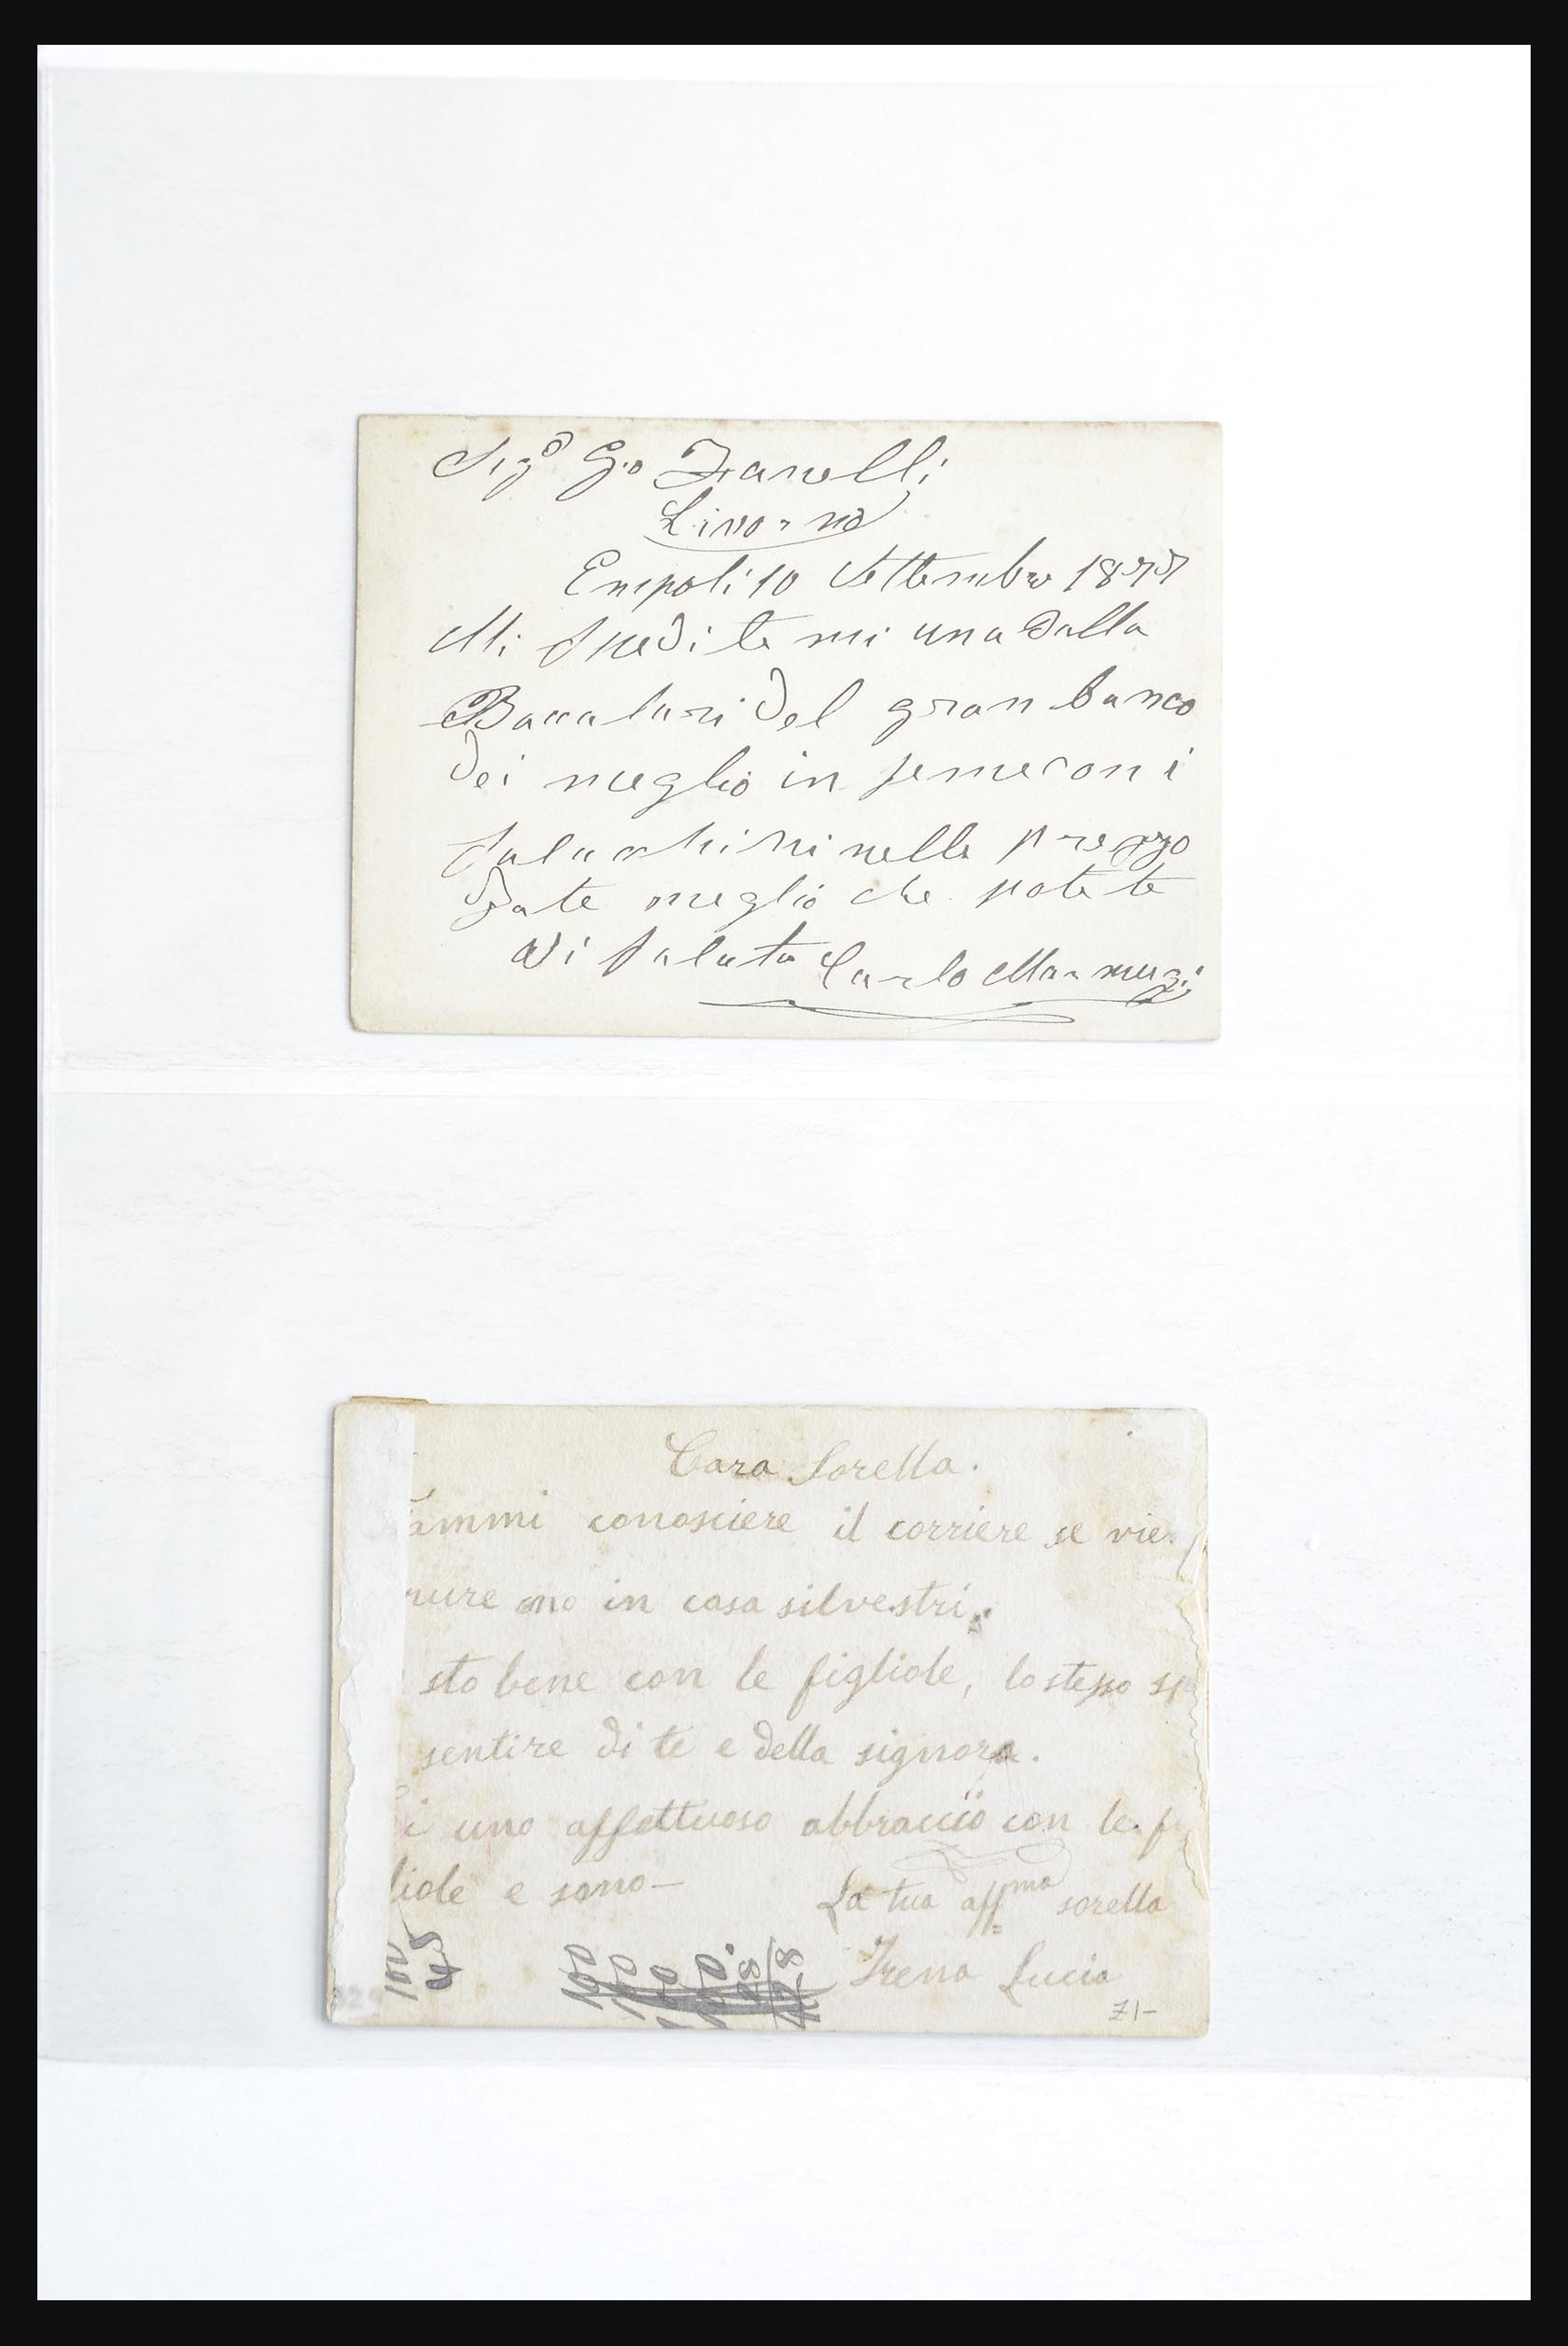 Sigo Go Zanelli
Livorno
Empoli 10 Settembre 1877
Mi Spedite mi una Balla
Baccalari del gran banco
dei meglio in
nelle prezzo
fate meglio che potete
Vi Saluta Carlo
Cara Sorella.
ammi conosciere il corriere se vie
nure ono in casa silvestri.
sto bene con le figliole, lo stesso sp
sentire di te e della signora.
i uno affettuoso abbraccio con le fi
liole e sono—
La tua affma sorella
Irena Lucia
100
45
100
100
100
100
28
428
71-